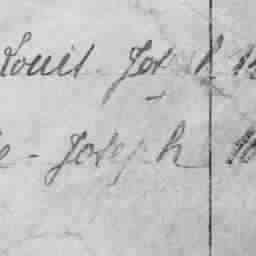 Louis Joseph
- Joseph